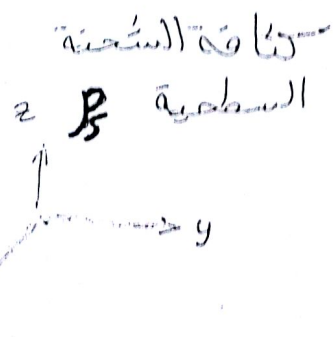 كثافة الشحنة
السطحية ρs
z
y